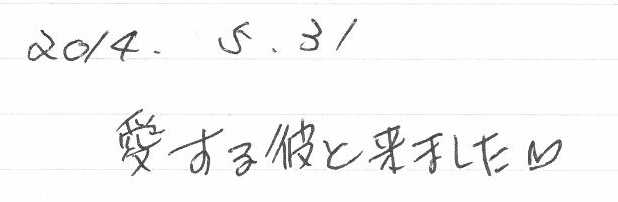 2014. 5.31
愛する彼と来ました♡